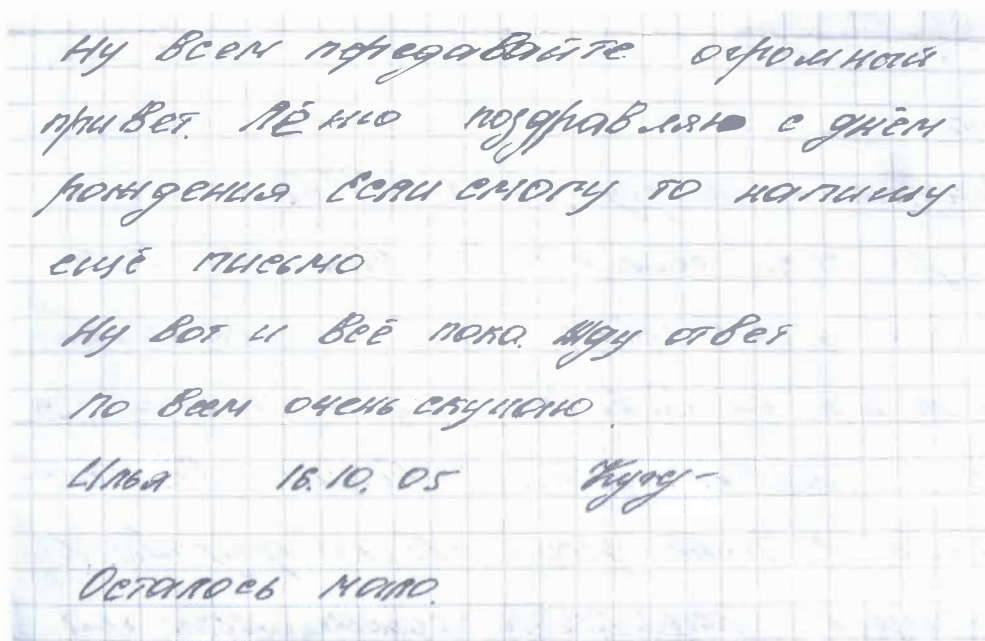 Ну всем передавайте огромный
привет. Лёхию поздравляю с днём
рождения. Если смогу то напишу
ещё письмо
Ну вот и всё пока. Жду ответ
по всем очень скучаю.
Илья 16.10.05
Осталось мало.